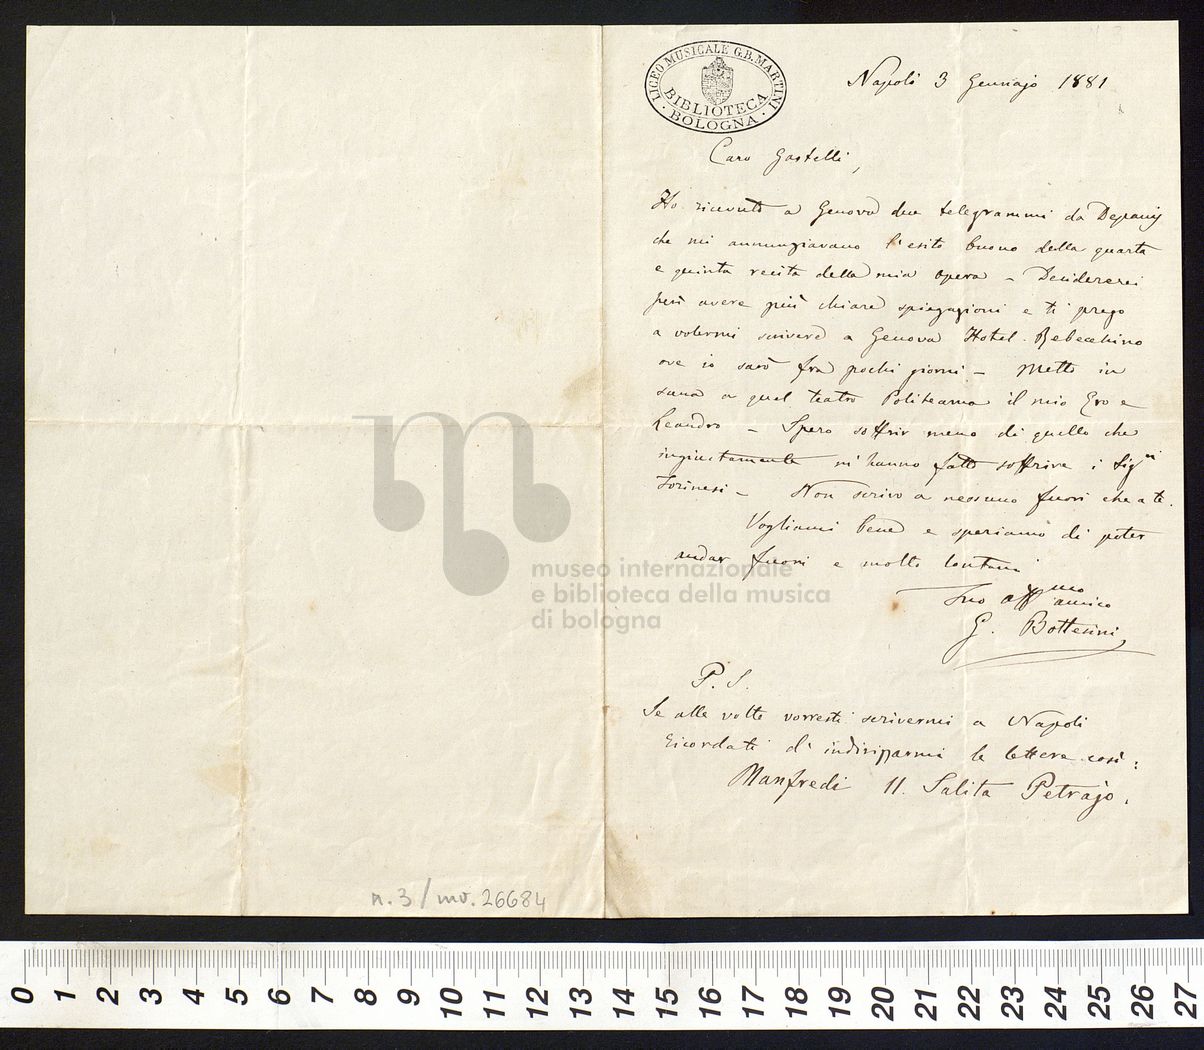 LICEO MUSICALE G.B. MARTINI
BIBLIOTECA
BOLOGNA
Napoli 3 Gennajo 1881
Caro Gastelli,
Ho ricevuto a Genova due telegrammi da Depanis
che mi annunziavano l'esito buono della quarta
e quinta recita della mia opera – Desidererei
però avere più chiare spiegazioni e ti prego
a volermi scrivere a Genova Hotel Rebecchino
ove io sarò fra pochi giorni – Metto in
scena a quel teatro Politeama il mio Ero e
Leandro – Spero soffrir meno di quello che
ingiustamente m'hanno fatto soffrire i Sigri
Torinesi – Non scrivo a nessuno fuori che a te.
Vogliami bene e speriamo di poter
andar fuori e molto lontani
Tuo affmo amico
G. Bottesini
P. S.
Se alle volte vorresti scrivermi a Napoli
ricordati d'indirizzarmi le lettere così:
Manfredi 11. Salita Petrajo.
museo internazionale
e biblioteca della musica
di bologna
n. 3 / mv. 26684
0 1 2 3 4 5 6 7 8 9 10 11 12 13 14 15 16 17 18 19 20 21 22 23 24 25 26 27